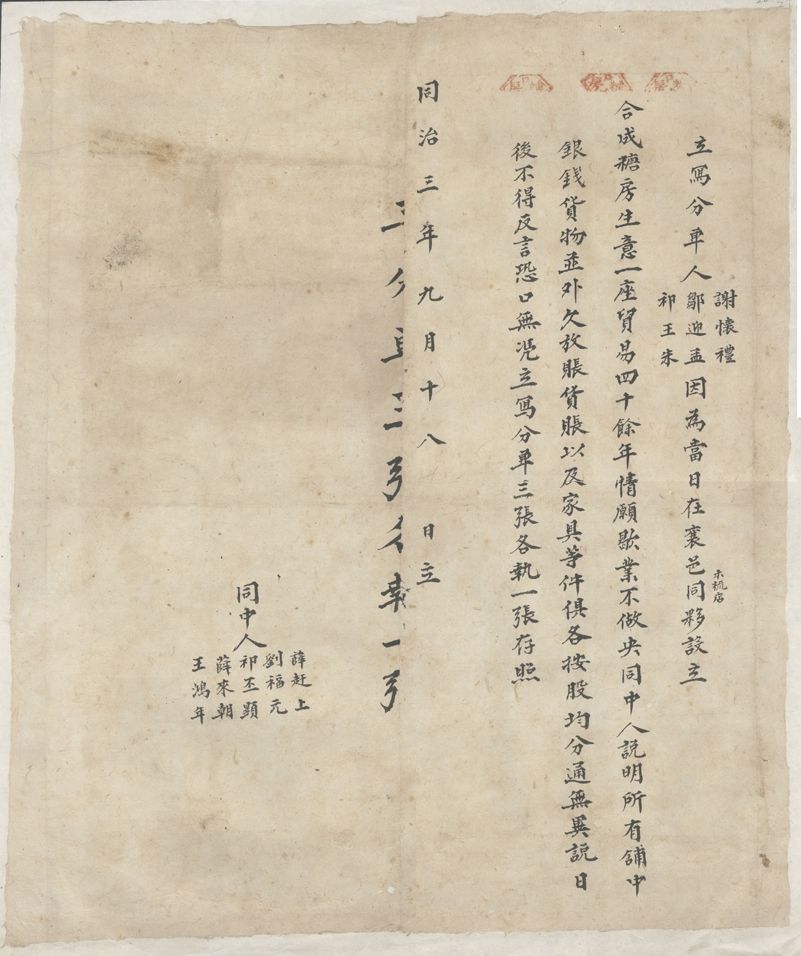 立寫分单人
謝懷禮
鄒迎孟
祁王朱
因為當日在襄邑同夥設立
木瓶店
合成糖房生意一座貿易四十餘年情願歇業不做央同中人説明所有舖中
銀錢貨物並外欠放賬貨賬以及家具等件俱各按股均分通無異説日
後不得反言恐口無憑立寫分单三張各執一張存照
同治三年九月十八日立
同中人
薛赶上
劉福元
祁丕顕
薛來朝
王鴻年